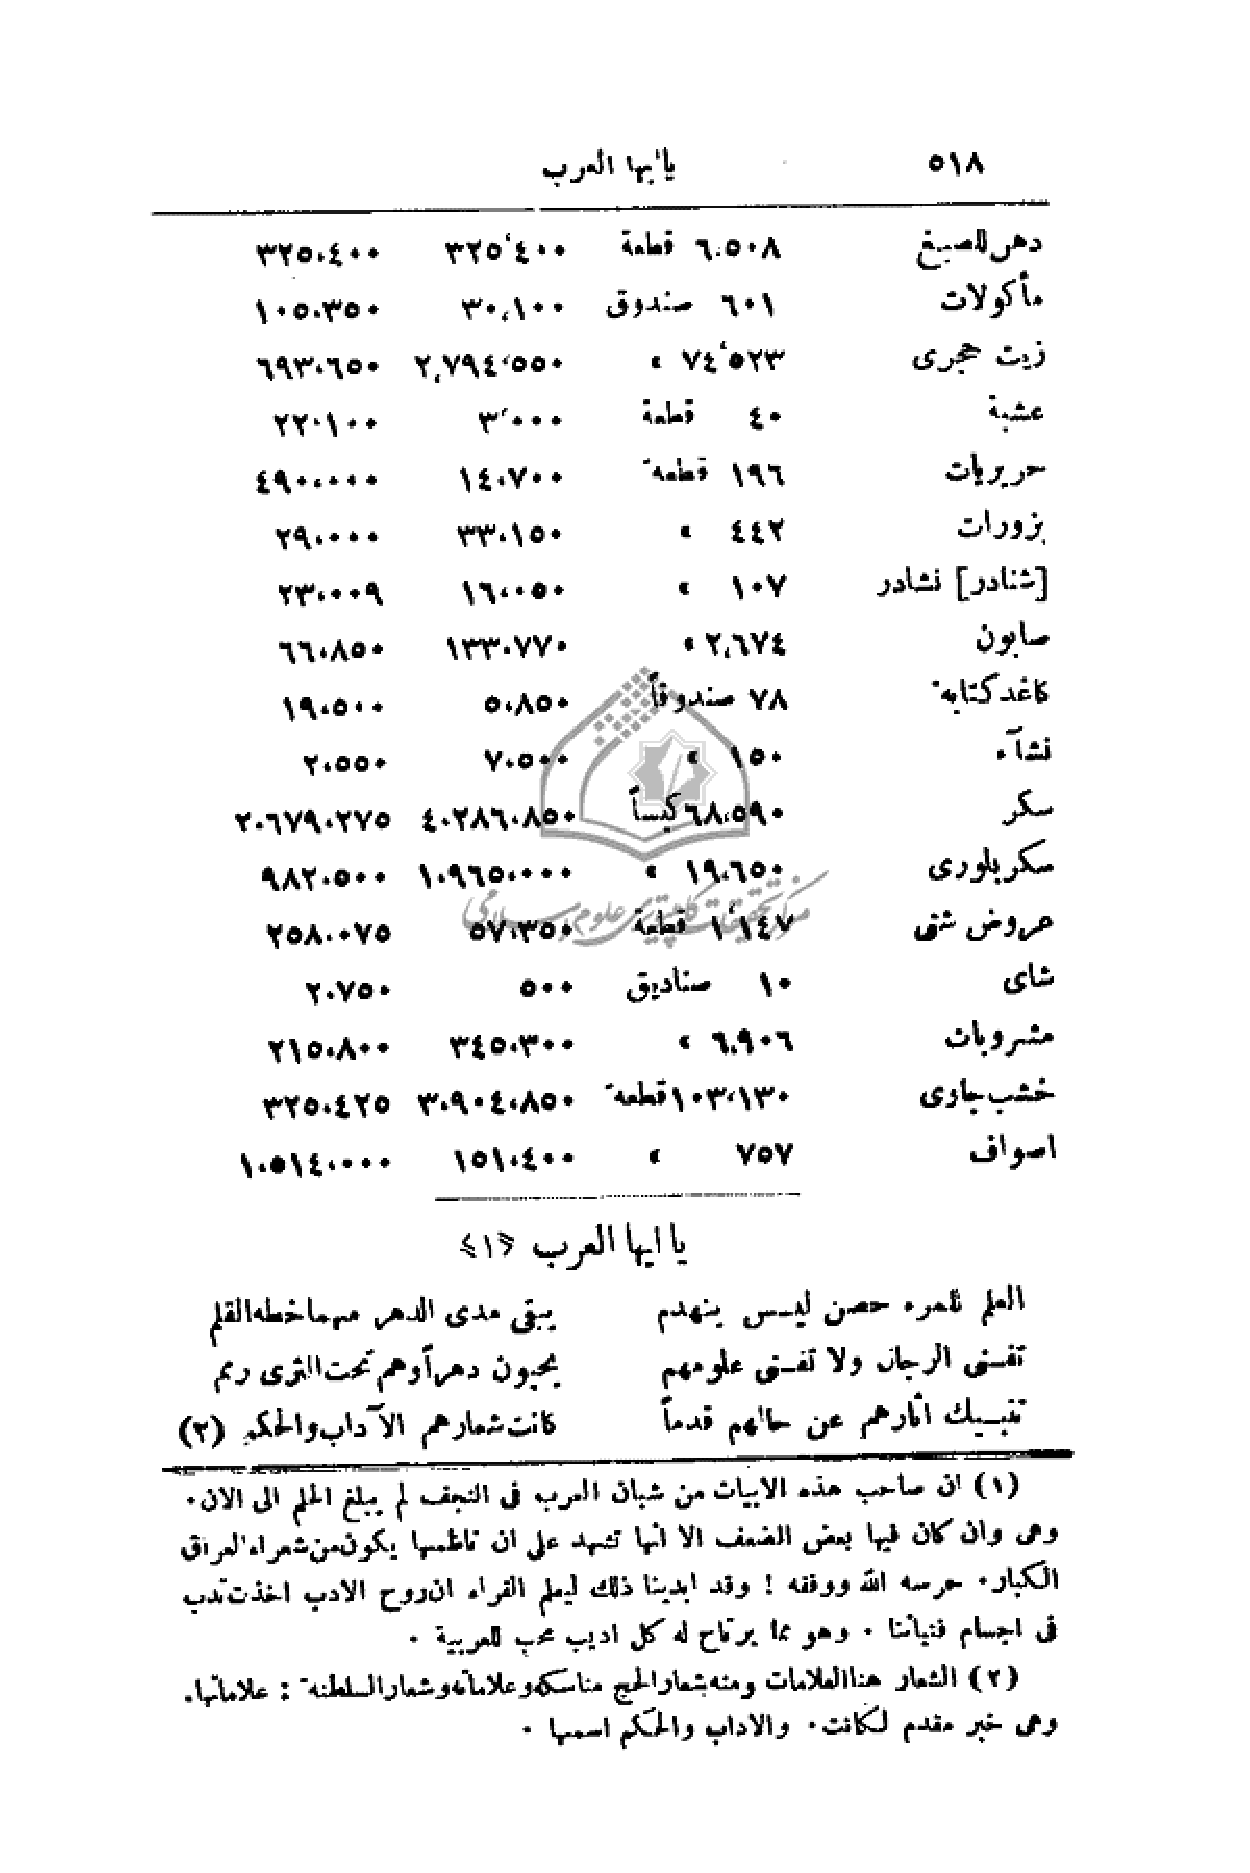 ٥١٨ يا ايها العرب
دهن للصبغ ٦٠٥٠٨ قطعة ٣٢٥٬٤٠٠ ٣٢٥٠٤٠٠
مأكولات ٦٠١ صندوق ٣٠،١٠٠ ١٠٥٠٣٥٠
زيت حجرى ٧٤٬٥٢٣ » ٢,٧٩٤٬٥٥٠ ٦٩٣٠٦٥٠
عشبة ٤٠ قطعة ٣٬٠٠٠ ٢٢٠١٠٠
حريريات ١٩٦ قطعة ١٤٠٧٠٠ ٤٩٠٠٠٠٠
بزورات ٤٤٢ » ٣٣٠١٥٠ ٢٩٠٠٠٠
[شنادر] نشادر ١٠٧ » ١٦٠٠٥٠ ٢٣٠٠٠٩
صابون ٢,٦٧٤ » ١٣٣٠٧٧٠ ٦٦٠٨٥٠
كاغد كتابة ٧٨ صندوقاً ٥٠٨٥٠ ١٩٠٥٠٠
نشآء ١٥٠ » ٧٠٥٠٠ ٢٠٥٥٠
سكر ٦٨،٥٩٠ كيساً ٤٠٢٨٦٠٨٥٠ ٢٠٦٧٩٠٢٧٥
سكر بلورى ١٩،٦٥٠ » ١٠٩٦٥٠٠٠٠ ٩٨٢٠٥٠٠
عروض شتى ١٬١٤٧ قطعة ٥٧،٣٥٠ ٢٥٨٠٠٧٥
شاى ١٠ صناديق ٥٠٠ ٢٠٧٥٠
مشروبات ٦،٩٠٦ » ٣٤٥٠٣٠٠ ٢١٥٠٨٠٠
خشب جاوى ١٠٣،١٣٠ قطعة ٣٠٩٠٤٠٨٥٠ ٣٢٥٠٤٢٥
اصواف ٧٥٧ » ١٥١٠٤٠٠ ١٠٥١٤٠٠٠٠
يا ايها العرب «١»
العلم للمرء حصن ليس ينهدم يبقى مدى الدهر مهما خطه القلم
تفنى الرجال ولا تفنى علومهم يحيون دهراً وهم تحت الثرى رمم
تنبيك اثارهم عن حالهم قدماً كانت شعارهم الآداب والحكم (٢)
(١) ان صاحب هذه الابيات من شبان العرب فى النجف لم يبلغ الحلم الى الان.
وهى وان كان فيها بعض الضعف الا انها تشهد على ان ناظمها يكون من شعراء العراق
الكبار. حرسه الله ووفقه ! وقد ابدينا ذلك ليعلم القراء ان روح الادب اخذت تدب
فى اجسام فتياننا . وهو مما يرتاح له كل اديب محب للعربية .
(٢) الشعار هنا العلامات ومنه شعار الحج مناسكه وعلاماته وشعار السلطنة : علاماتها.
وهى خبر مقدم لكانت. والاداب والحكم اسمها .
مركز تحقيقات كامپيوترى علوم اسلامى